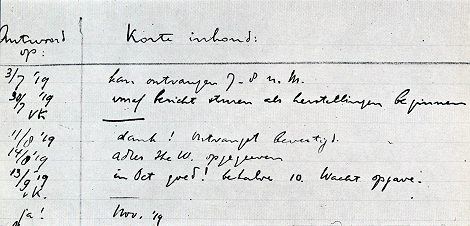 Antwoord Korte inhoud:
op:
3/7 '19 kan ontvangen 7-8 n.M.
30/7 '19 vooraf bericht sturen als herstellingen beginnen
VK
11/8 '19 dank! Ontvangst bevestigd.
14/8 '19 adres the W. opgegeven
13/9 '19 in Oct goed! behalve 10. Wacht opgave.
VK.
ja! Nov. '19